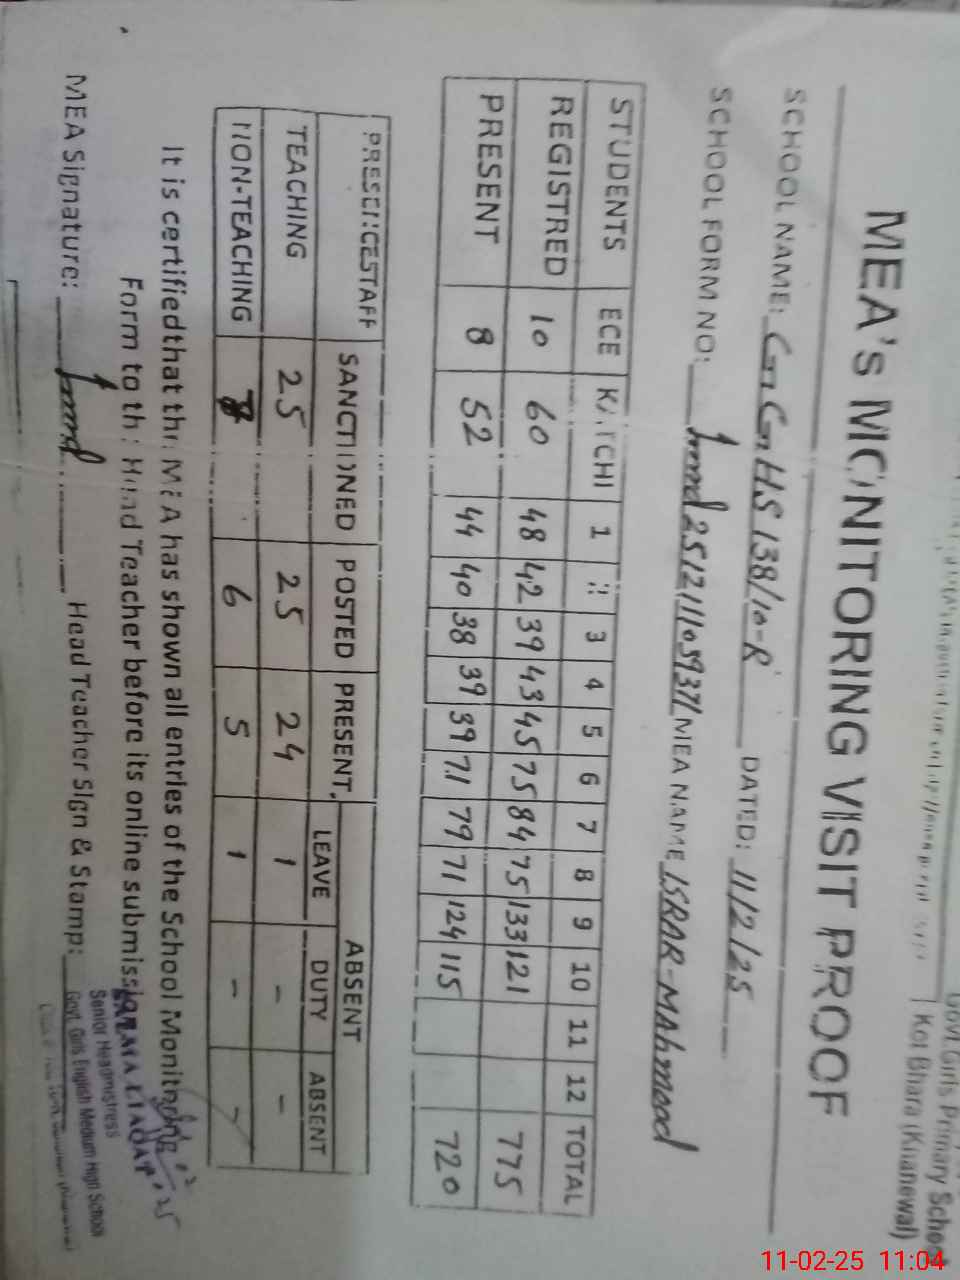 Govt. Girls Primary School
Kot Bhara (Khanewal)
MEA's MONITORING VISIT PROOF
SCHOOL NAME: GGHS 138/10-R DATED: 11/2/25
SCHOOL FORM NO: MEA NAME ISRAR-MAhmood
STUDENTS ECE KATCHI 1 2 3 4 5 6 7 8 9 10 11 12 TOTAL
REGISTRED 10 60 48 42 39 43 45 75 84 75 133 121 775
PRESENT 8 52 44 40 38 39 39 71 79 71 124 115 720
PRESENCESTAFF SANCTIONED POSTED PRESENT ABSENT
LEAVE DUTY ABSENT
TEACHING 25 25 24 1 - -
NON-TEACHING 6 5 1 - -
It is certified that the MEA has shown all entries of the School Monitoring
Form to the Head Teacher before its online submission.
MEA Signature: Head Teacher Sign & Stamp:
Senior Headmistress
Govt. Girls English Medium High School
11-02-25 11:04